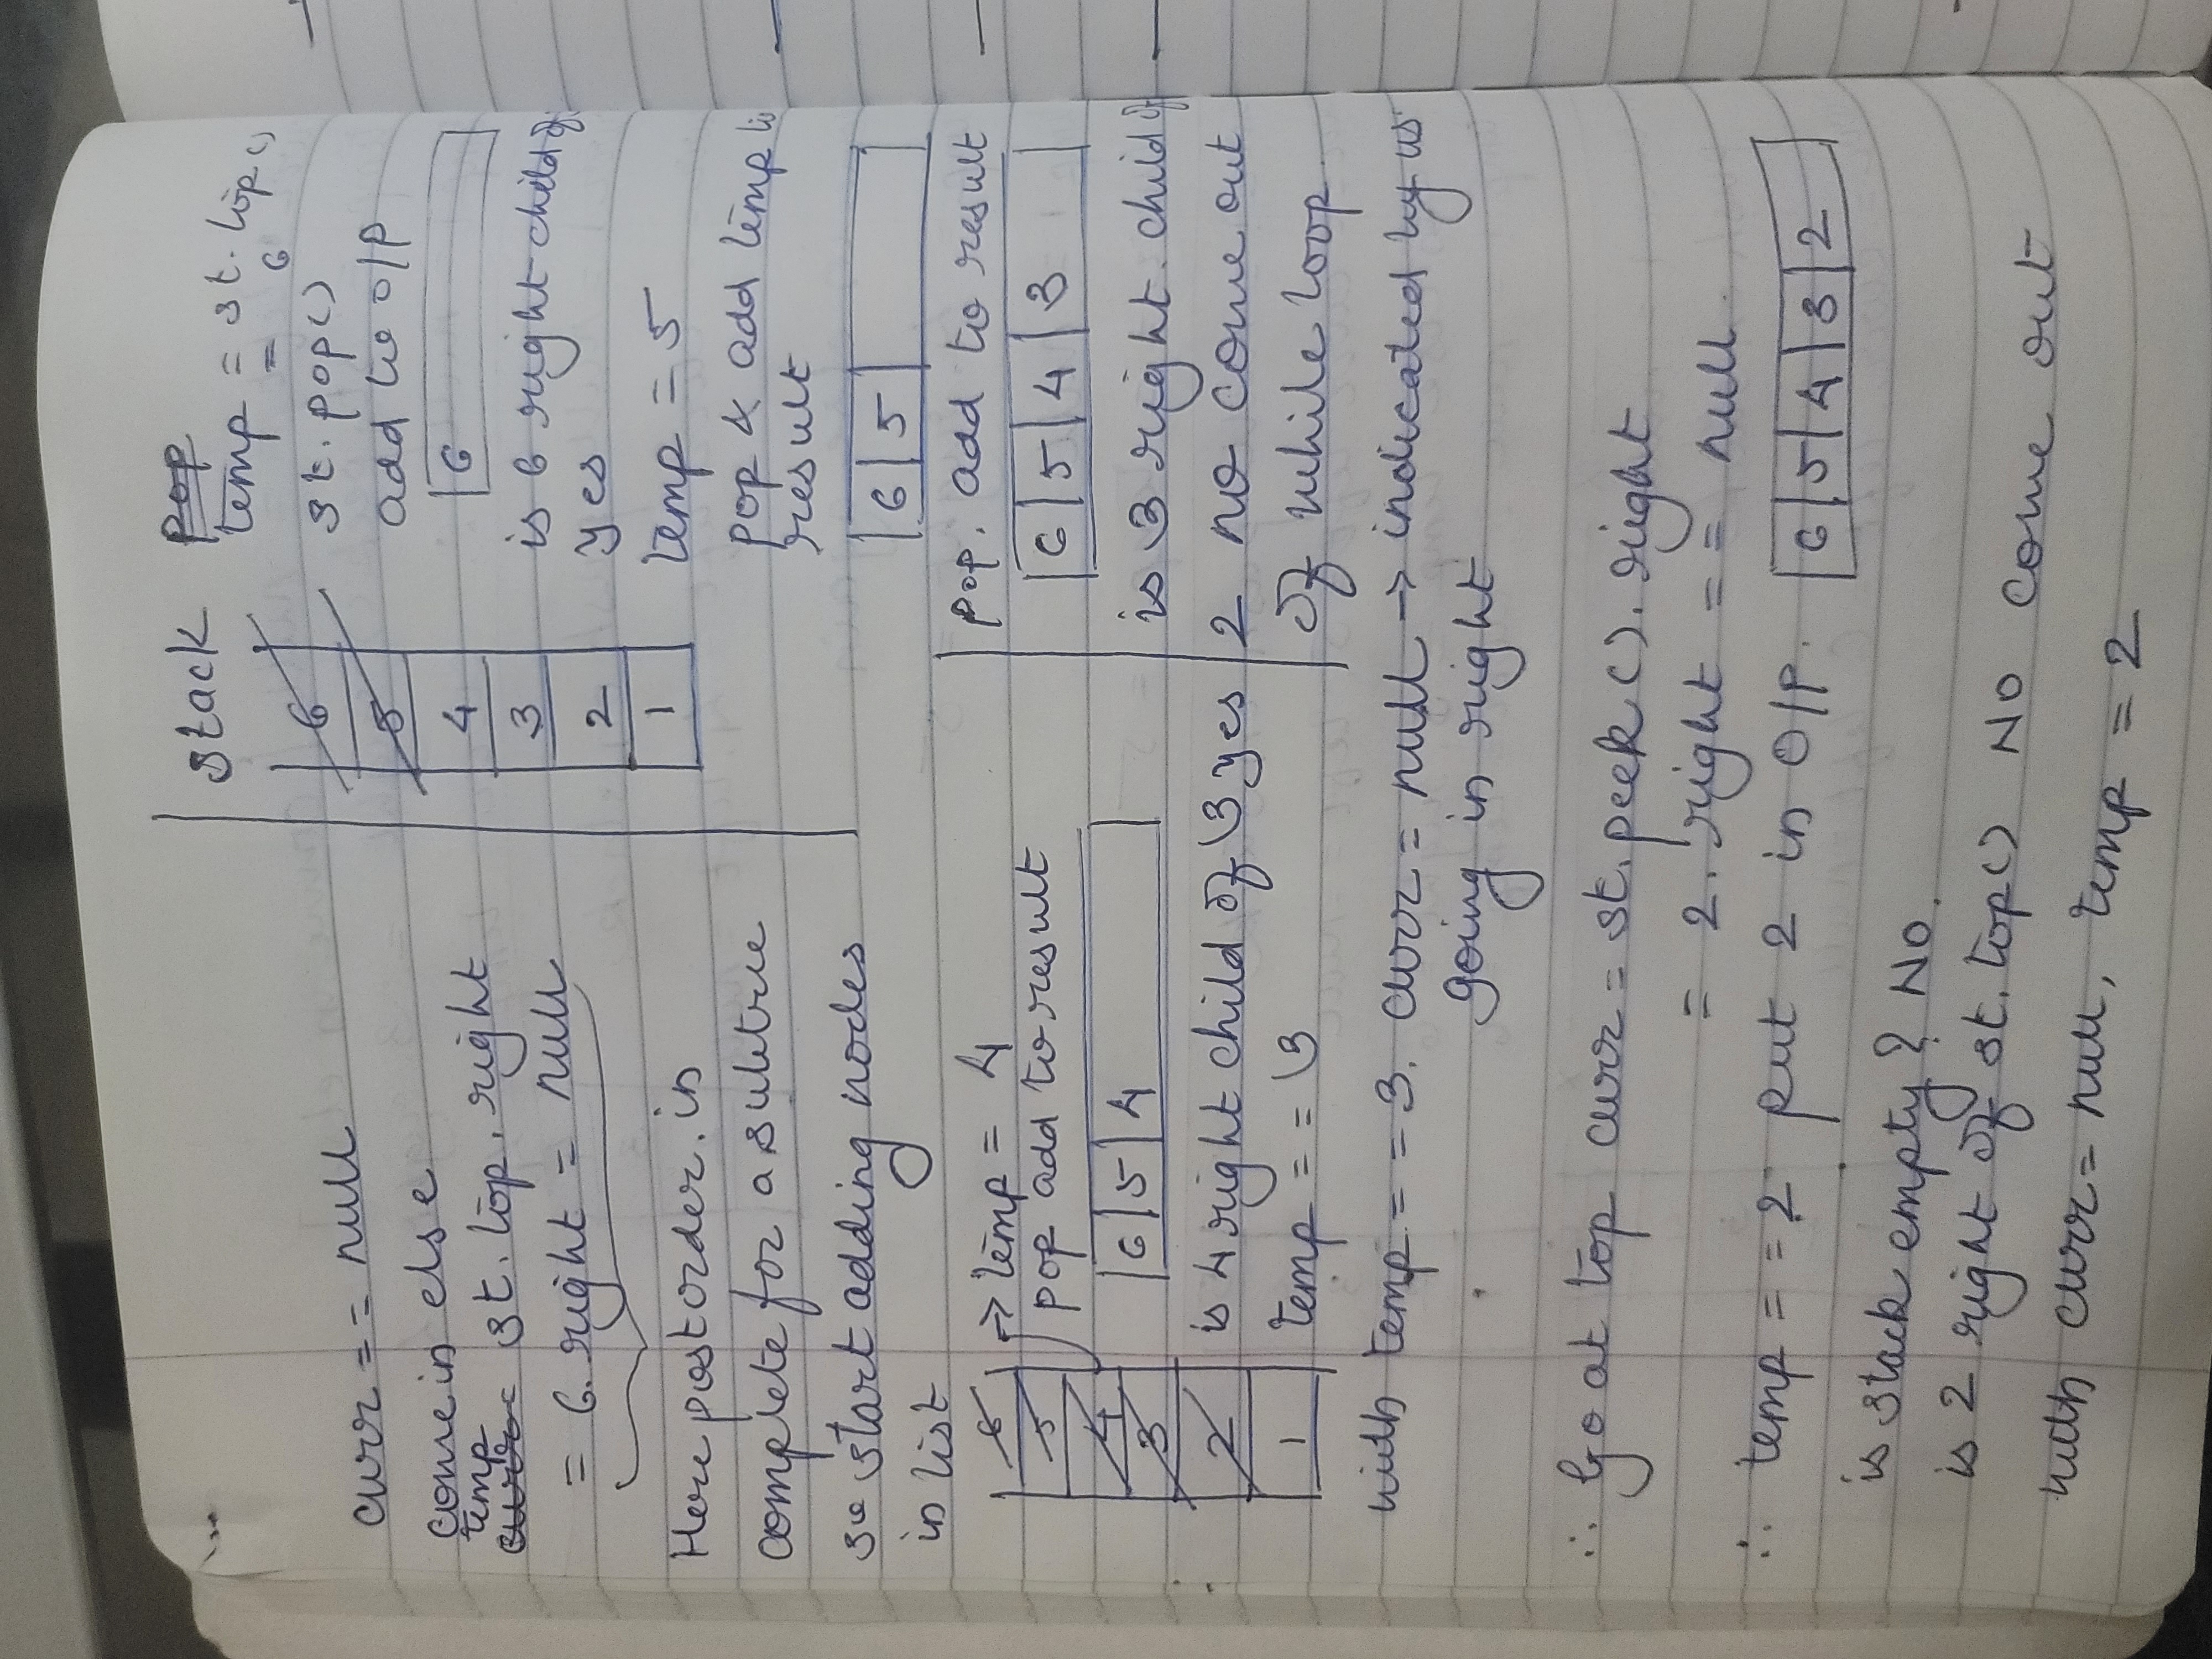 curr == null
come in else
temp
curr = st. top. right
= 6. right = null
Here postorder. is
complete for a subtree
so start adding nodes
in list
stack
6
5
4
3
2
1
pop
temp = st. top()
= 6
st. pop()
add to o/p
6
is 6 right child of
yes
temp = 5
pop & add temp to
result
6 5
6
5
4
3
2
1
→ temp = 4
pop add to result
6 5 4
is 4 right child of 3 yes
temp == 3
pop. add to result
6 5 4 3
is 3 right. child of
2 no come out
of while loop.
with temp == 3. curr = null → indicated by us
going in right
∴ Go at top curr = st. peek (). right
= 2. right == null.
∴ temp == 2 put 2 in O/P.
6 5 4 3 2
is stack empty? No.
is 2 right of st. top() NO come out
with curr = null, temp = 2